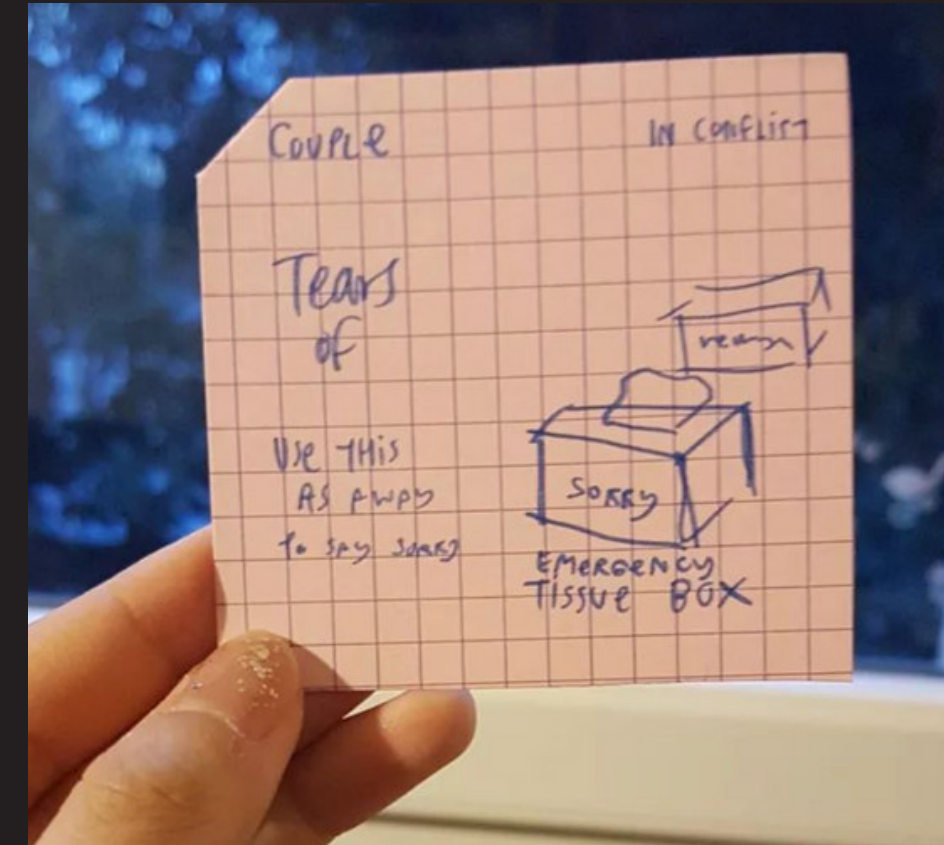 Couple
IN CONFLICT
Tears
of
Use THis
As A WAY
To SAY SORRY
SORRY
EMERGENCY
TISSUE BOX